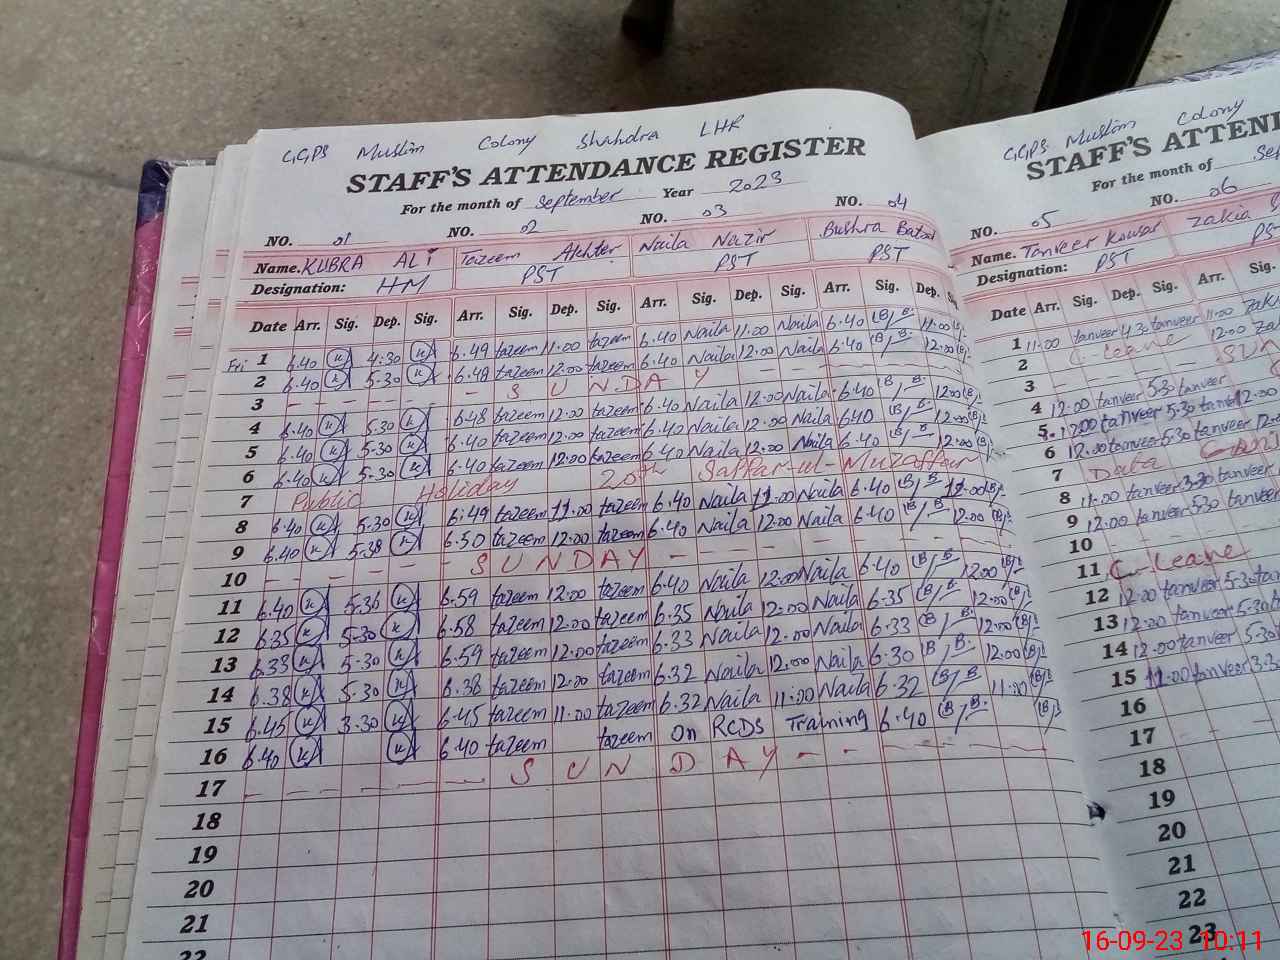 GGPS Muslim Colony Shahdra LHR
STAFF'S ATTENDANCE REGISTER
For the month of September Year 2023
NO. 01 NO. 02 NO. 03 NO. 04
Name. KUBRA ALI Tazeem Akhter Naila Nazir Bushra Batool
Designation: HM PST PST PST
Date Arr. Sig. Dep. Sig. Arr. Sig. Dep. Sig. Arr. Sig. Dep. Sig. Arr. Sig. Dep. Sig.
Fri 1 6.40 K 4.30 K 6.49 tazeem 11.00 tazeem 6.40 Naila 11.00 Naila 6.40 B 11.00
2 6.40 K 5.30 K 6.48 tazeem 12.00 tazeem 6.40 Naila 12.00 Naila 6.40 B 12.00
3 SUNDAY
4 6.40 K 5.30 K 6.48 tazeem 12.00 tazeem 6.40 Naila 12.00 Naila 6.40 B 12.00
5 6.40 K 5.30 K 6.40 tazeem 12.00 tazeem 6.40 Naila 12.00 Naila 6.40 B 12.00
6 6.40 K 5.30 K 6.40 tazeem 12.00 tazeem 6.40 Naila 12.00 Naila 6.40 B 12.00
7 Public Holiday 20th Saffar-ul-Muzaffar
8 6.40 K 5.30 K 6.49 tazeem 11.00 tazeem 6.40 Naila 11.00 Naila 6.40 B 11.00
9 6.40 K 5.38 K 6.50 tazeem 12.00 tazeem 6.40 Naila 12.00 Naila 6.40 B 12.00
10 SUNDAY
11 6.40 K 5.36 K 6.59 tazeem 12.00 tazeem 6.40 Naila 12.00 Naila 6.40 B 12.00
12 6.35 K 5.30 K 6.58 tazeem 12.00 tazeem 6.35 Naila 12.00 Naila 6.35 B 12.00
13 6.33 K 5.30 K 6.59 tazeem 12.00 tazeem 6.33 Naila 12.00 Naila 6.33 B 12.00
14 6.38 K 5.30 K 6.38 tazeem 12.00 tazeem 6.32 Naila 12.00 Naila 6.30 B 12.00
15 6.45 K 3.30 K 6.45 tazeem 11.00 tazeem 6.32 Naila 11.00 Naila 6.32 B 11.00
16 6.40 K K 6.40 tazeem tazeem On RCDS Training 6.40 B
17 SUNDAY
18
19
20
21
22
GGPS Muslim Colony
STAFF'S
For the month of
NO. 05 06
Name. Tanveer Kowsar Zakia
Designation: PST
Date Arr. Sig. Dep. Sig. Arr. Sig.
1 11.00 tanveer 4.30 tanveer 11.00
2 C-leave 12.00
3 SUN
4 12.00 tanveer 5.30 tanveer
5 12.00 tanveer 5.30 12.00
6 12.00 tanveer 5.30 tanveer
7
8 11.00 tanveer 3.30 tanveer
9 12.00 tanveer 5.30 tanveer
10
11 C-leave
12 12.00 tanveer 5.30
13 12.00 tanveer 5.30
14 12.00 tanveer 5.30
15 11.00 tanveer 3.3
16
17
18
19
20
21
22
23
16-09-23 10:11